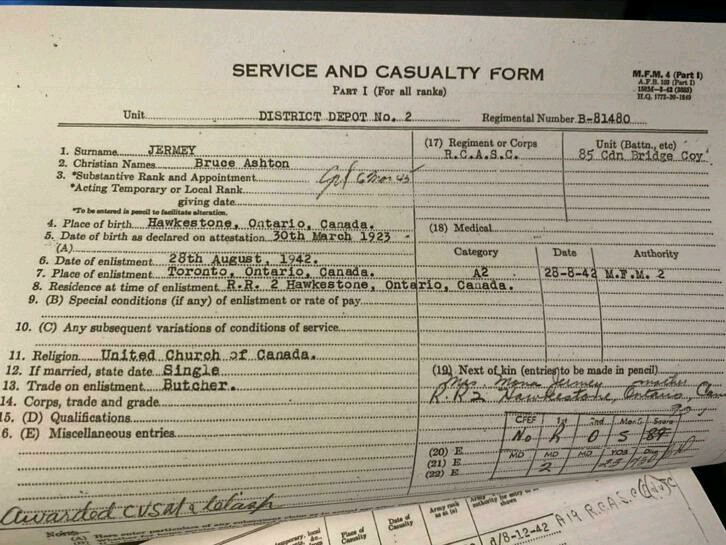 SERVICE AND CASUALTY FORM
PART I (For all ranks)
M.F.M. 4 (Part I)
A.F.B. 103 (Part I)
H.Q. 1772-39-1649
Unit DISTRICT DEPOT No. 2 Regimental Number B-81480
1. Surname JERMEY
2. Christian Names Bruce Ashton
3. *Substantive Rank and Appointment
*Acting Temporary or Local Rank
giving date
*To be entered in pencil to facilitate alteration.
4. Place of birth Hawkestone, Ontario, Canada.
5. Date of birth as declared on attestation 30th March 1923
(A)
6. Date of enlistment 28th August, 1942.
7. Place of enlistment Toronto, Ontario, Canada.
8. Residence at time of enlistment R.R. 2 Hawkestone, Ontario, Canada.
9. (B) Special conditions (if any) of enlistment or rate of pay
10. (C) Any subsequent variations of conditions of service
11. Religion United Church of Canada.
12. If married, state date Single
13. Trade on enlistment Butcher.
14. Corps, trade and grade
15. (D) Qualifications
6. (E) Miscellaneous entries
(17) Regiment or Corps Unit (Battn., etc)
R.C.A.S.C. 85 Cdn Bridge Coy
(18) Medical
Category Date Authority
A2 28-8-42 M.F.M. 2
(19) Next of kin (entries to be made in pencil)
Mrs. Mona Jermey mother
R.R 2 Hawkestone, Ontario,
CPEF 1st 2nd Mar S Score
No R O S
MD MD MD YOB
2 23
(20) E
(21) E
(22) E
Awarded CVSM & Clasp
Place of Casualty
Date of Casualty
Army rank
d/8-12-42 A19 R.C.A.S.C